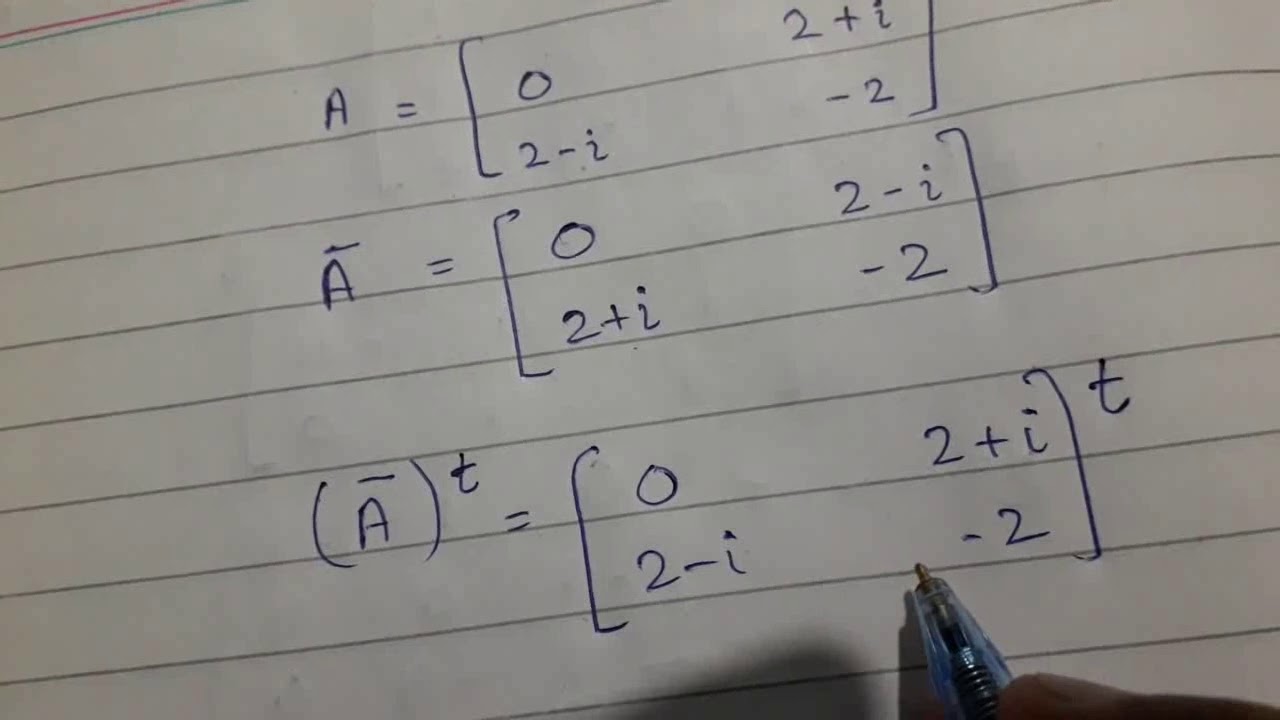 A = [ 0 2 + i
2 - i - 2 ]
Ā = [ 0 2 - i
2 + i - 2 ]
(Ā)^t = [ 0 2 + i
2 - i - 2 ]^t